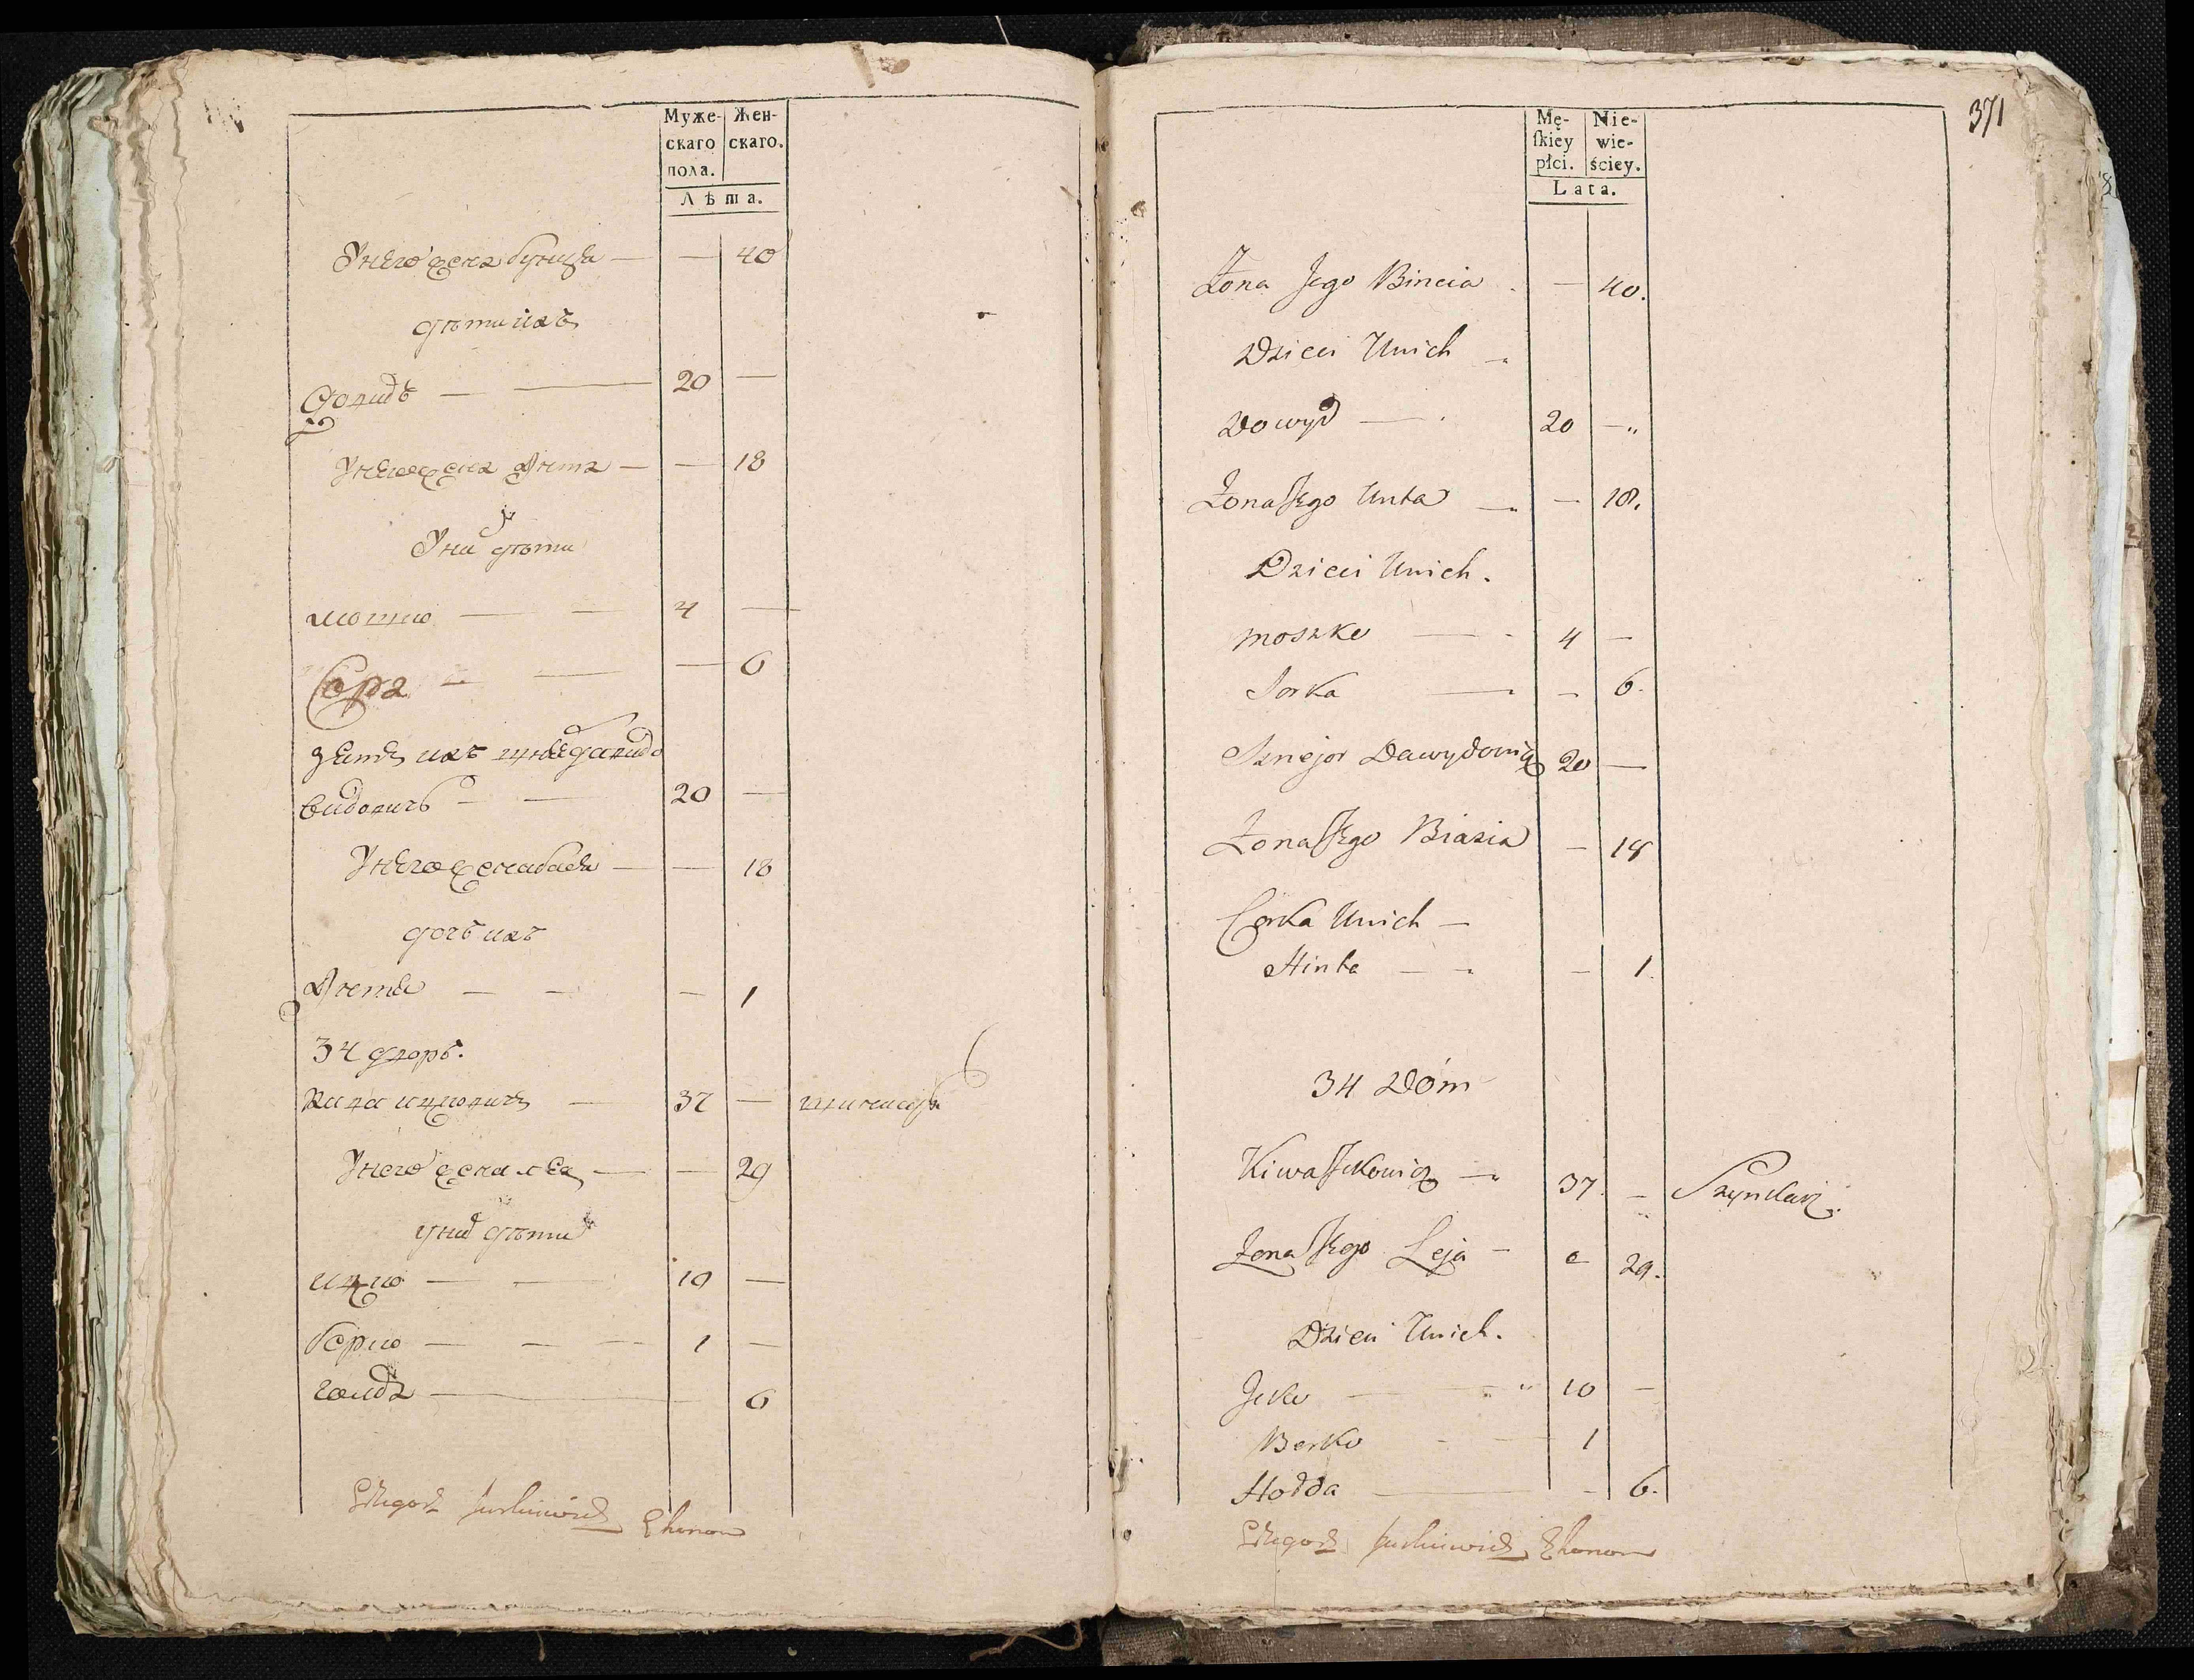 Муже- Жен-
скаго скаго.
пола.
Лѣта.
У него жена бунця — — 40
дѣти ихъ
Довидъ — — 20 —
У него жена Энта — — 18
У ни дѣти
мошко — — 4 —
Сора — — — 6
зять ихъ
видовичъ — — 20 —
У него жена бася — — 18
дочь ихъ
Энта — — — 1
34 дворъ.
кива ицковичъ — 37 — шинкаръ
У него жена лея — — 29
у ни дѣти
ицко — — 10 —
берко — — — 1 —
года — — 6
371
Mę- Nie-
ſkiey wie-
płci. ściey.
Lata.
Żona Jego Bincia . — 40.
Dzieci Unich —
Dowyd — 20 —
Żona Jego Unta — — 18.
Dzieci Unich.
Moszko — 4 —
Sorka — — 6.
Sznejor Dawydowicz 20 —
Żona Jego Biasia — 18
Corka Unich —
Hinta — — 1.
34 Dóm
Kiwa Jckowicz — 37. — Szynkarz.
Żona Jego Leja — 29.
Dzieci Unich.
Jcko — 10 —
Berko — — 1
Hodda — — 6.